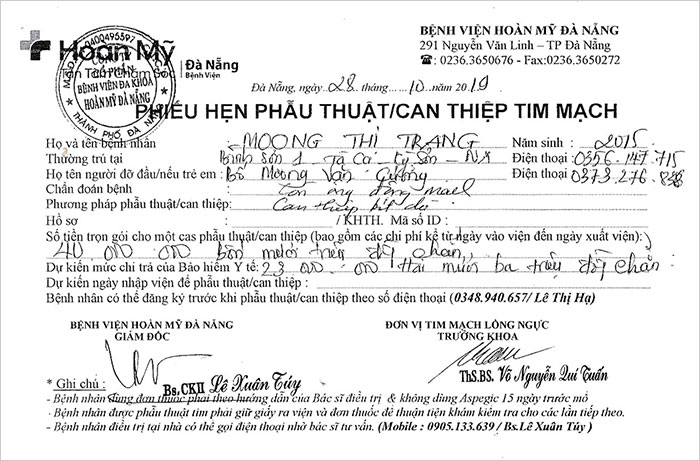 BỆNH VIỆN HOÀN MỸ ĐÀ NẴNG
291 Nguyễn Văn Linh – TP Đà Nẵng
☎: 0236.3650676 - Fax:0236.3650272
Hoàn Mỹ
Đà Nẵng
Bệnh Viện
Tận Tâm Chăm Sóc
M.S.D.N: 0400495597
CÔNG TY
CỔ PHẦN
BỆNH VIỆN ĐA KHOA
HOÀN MỸ ĐÀ NẴNG
THÀNH PHỐ ĐÀ NẴNG
Đà Nẵng, ngày 28 tháng 10 năm 2019
PHIẾU HẸN PHẪU THUẬT/CAN THIỆP TIM MẠCH
Họ và tên bệnh nhân : MOONG THỊ TRANG Năm sinh : 2015
Thường trú tại : Bình Sơn 1 - Tà Cạ - Kỳ Sơn - NA Điện thoại : 0356.147.715
Họ tên người đỡ đầu/nếu trẻ em : Bố Moong Văn Cường Điện thoại : 0373.276.838
Chẩn đoán bệnh : Còn ống động mạch
Phương pháp phẫu thuật/can thiệp: Can thiệp bít dù
Hồ sơ : / KHTH. Mã số ID :
Số tiền trọn gói cho một cas phẫu thuật/can thiệp (bao gồm các chi phí kể từ ngày vào viện đến ngày xuất viện):
40 000 000 bốn mươi triệu đồng chẵn
Dự kiến mức chi trả của Bảo hiểm Y tế: 23 000 000 Hai mươi ba triệu đồng chẵn
Dự kiến ngày nhập viện để phẫu thuật/can thiệp :
Bệnh nhân có thể đăng ký trước khi phẫu thuật/can thiệp theo số điện thoại (0348.940.657/ Lê Thị Hạ)
BỆNH VIỆN HOÀN MỸ ĐÀ NẴNG
GIÁM ĐỐC
ĐƠN VỊ TIM MẠCH LỒNG NGỰC
TRƯỞNG KHOA
Bs.CKII Lê Xuân Túy
ThS.BS. Võ Nguyễn Quí Tuấn
* Ghi chú :
- Bệnh nhân dùng đơn thuốc phải theo hướng dẫn của Bác sĩ điều trị & không dùng Aspegic 15 ngày trước mổ
- Bệnh nhân được phẫu thuật tim phải giữ giấy ra viện và đơn thuốc để thuận tiện khám kiểm tra cho các lần tiếp theo.
- Bệnh nhân điều trị tại nhà có thể gọi điện thoại nhờ bác sĩ tư vấn. (Mobile : 0905.133.639 / Bs.Lê Xuân Túy )